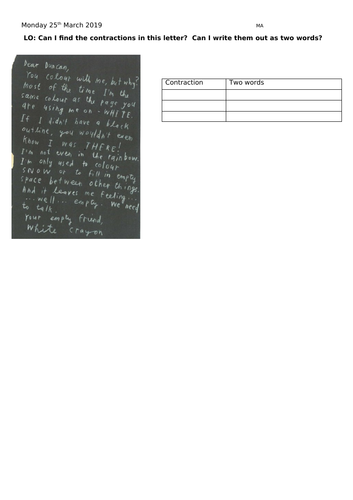 Monday 25th March 2019
MA
LO: Can I find the contractions in this letter? Can I write them out as two words?
Dear Duncan,
You colour with me, but why?
Most of the time I'm the
same colour as the page you
are using me on - WHITE.
If I didn't have a black
outline, you wouldn't even
know I was THERE!
I'm not even in the rainbow.
I'm only used to colour
SNOW or to fill in empty
space between other things.
And it leaves me feeling
... well... empty. We need
to talk.
Your empty friend,
White Crayon
Contraction Two words